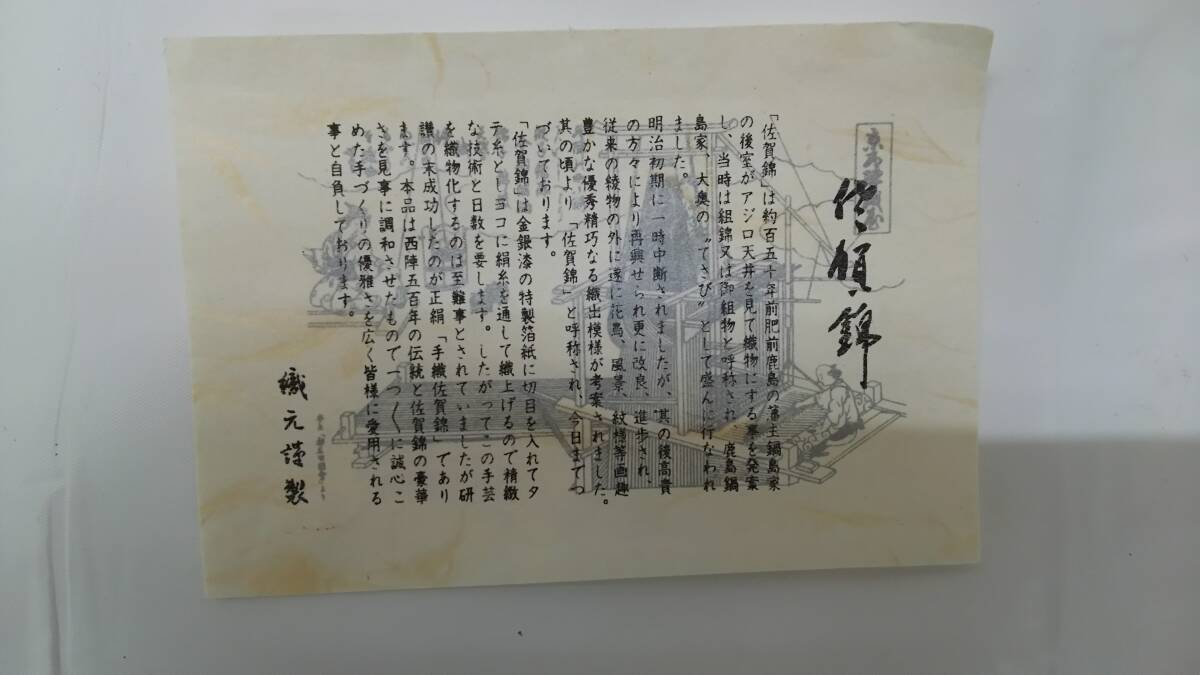 佐賀錦
「佐賀錦」は約百五十年前肥前鹿島の藩主鍋島家
の後室がアジロ天井を見て織物にする事を発案
し、当時は組錦又は御組物と呼称され、鹿島鍋
島家、大奥の〝てさび〟として盛んに行なわれ
ました。
明治初期に一時中断されましたが、其の後高貴
の方々により再興せられ更に改良、進歩され、
従来の綾物の外に遂に花鳥、風景、紋様等画趣
豊かな優秀精巧なる織出模様が考案されました。
其の頃より「佐賀錦」と呼称され、今日までつ
づいております。
「佐賀錦」は金銀漆の特製箔紙に切目を入れてタ
テ糸としヨコに絹糸を通して織上げるので精緻
な技術と日数を要します。したがってこの手芸
を織物化するのは至難事とされていましたが研
讃の末成功したのが正絹「手織佐賀錦」であり
ます。本品は西陣五百年の伝統と佐賀錦の豪華
さを見事に調和させたもので一つ〳〵に誠心こ
めた手づくりの優雅さを広く皆様に愛用される
事と自負しております。
織元謹製